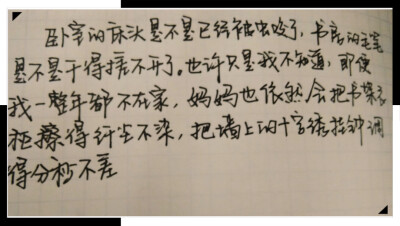 卧室的床头是不是已经被虫咬了，书房的毛笔
是不是干得搓不开了。也许只是我不知道，即使
我一整年都不在家，妈妈也依然会把书桌衣
柜擦得纤尘不染，把墙上的十字绣挂钟调
得分秒不差